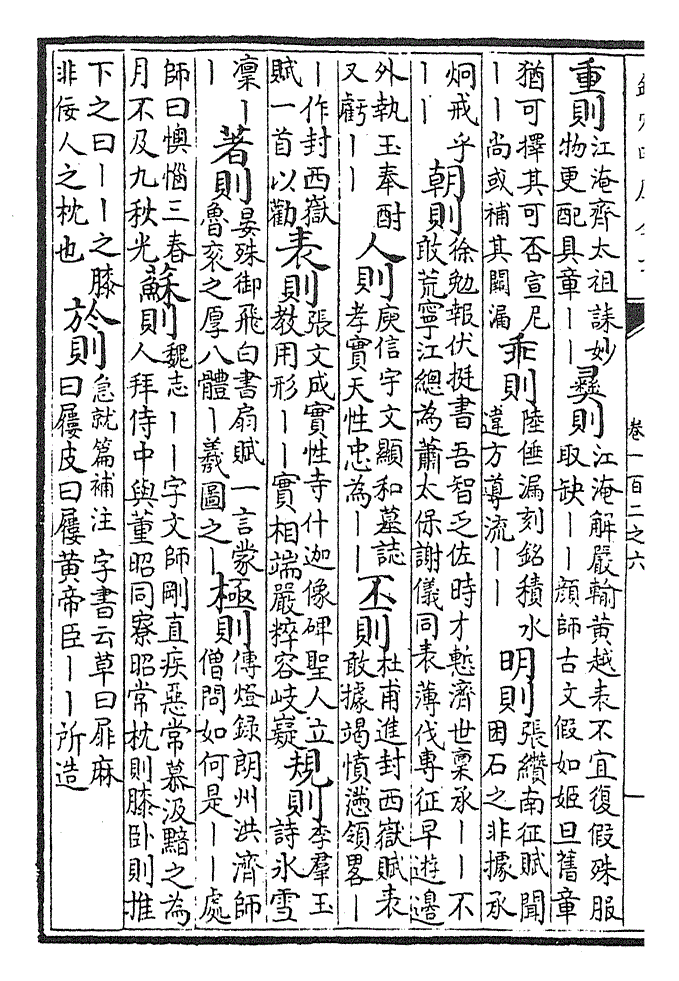 卷一百二之六
重則
江淹齊太祖誄妙
物更配具章丨丨
彛則
江淹解嚴輸黄越表不宜復假殊服
取缺丨丨顔師古文假如姬旦舊章
猶可擇其可否宣尼
丨丨尚或補其闕漏
乖則
陸倕漏刻銘積水
違方導流丨丨
明則
張纘南征賦聞
困石之非據承
炯戒乎
丨丨
朝則
徐勉報伏挺書吾智乏佐時才慙濟世稟承丨丨不
敢荒寧江總為蕭太保謝儀同表薄伐專征早遊邊
外執玉奉酎
又虧丨丨
人則
庾信宇文顯和墓誌
孝實天性忠為丨丨
不則
杜甫進封西嶽賦表
敢據竭憤懣領畧丨
丨作封西嶽
賦一首以勸
表則
張文成實性寺什迦像碑聖人立
教用形丨丨實相端嚴粹容岐嶷
規則
李羣玉
詩氷雪
凛丨
丨
著則
晏殊御飛白書扇賦一言蒙
魯衮之厚八體丨羲圖之丨
極則
傳燈録朗州洪濟師
僧問如何是丨丨處
師曰懊惱三春
月不及九秋光
蘇則
魏志丨丨字文師剛直疾惡常慕汲黯之為
人拜侍中與董昭同寮昭常枕則膝卧則推
下之曰丨丨之膝
非佞人之枕也
於則
急就篇補注字書云草曰屝麻
曰屨皮曰屨黄帝臣丨丨所造